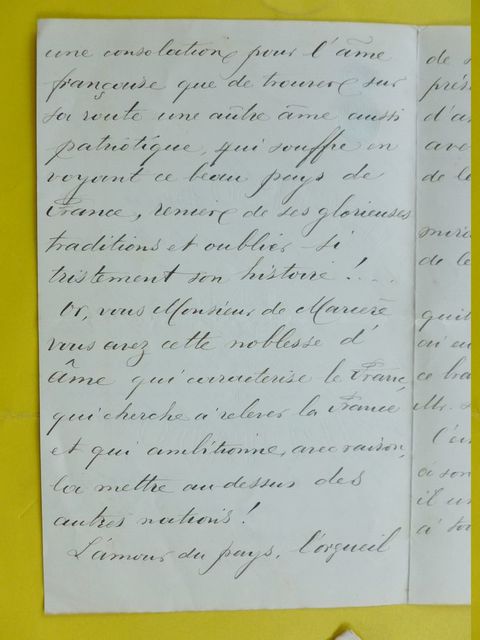 une consolation pour l'âme
française que de trouver sur
sa route une autre âme aussi
patriotique, qui souffre en
voyant ce beau pays de
France, renier de ses glorieuses
traditions et oublier si
tristement son histoire !...
Or, vous Monsieur de
vous avez cette noblesse d'
âme qui caracterise le Franç
qui cherche à relever la France
et qui ambitionne, avec raison,
la mettre au-dessus des
autres nations !
L'amour du pays, l'orgueil
de
prés
d'a
ave
de le
de le
qui
ce
Mr.
l'
à son
il
à